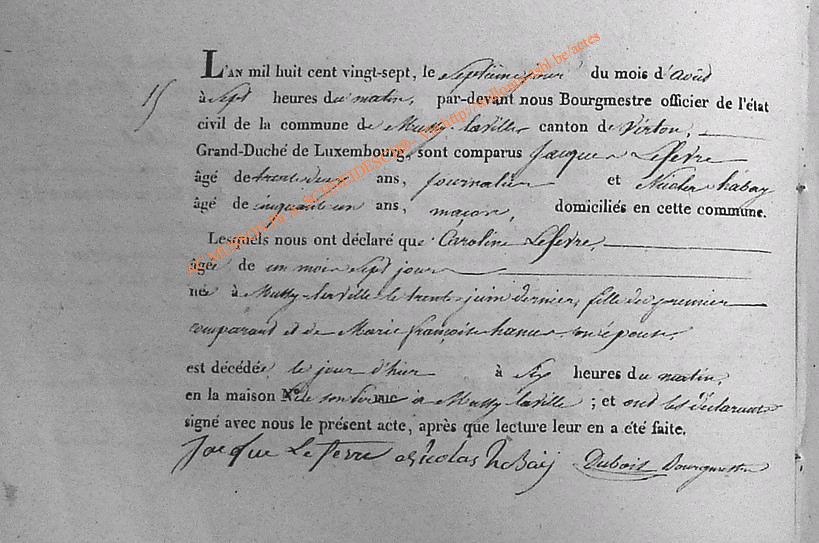 15
L'AN mil huit cent vingt-sept, le septième jour du mois d'août
à sept heures du matin, par-devant nous Bourgmestre officier de l'état
civil de la commune de Mussy-laville canton de Virton,
Grand-Duché de Luxembourg, sont comparus Jacques Lefevre
âgé de trente deux ans, journalier et Nicolas habay
âgé de cinquante un ans, maçon, domiciliés en cette commune.
Lesquels nous ont déclaré que Caroline Lefevre,
âgée de un mois sept jours
née à Mussy-laville le trente juin dernier, fille du premier
comparant et de Marie françoise hanus son épouse,
est décédée le jour d'hier à six heures du matin,
en la maison N.° de son père rue à Mussy-laville ; et ont les déclarants
signé avec nous le présent acte, après que lecture leur en a été faite.
Jacque Lefevre Nicolas habay Dubois Bourgmestre
AC MUSSON DE A SCHNEIDESCH06 - Via http://wallonia-asbl.be/actes